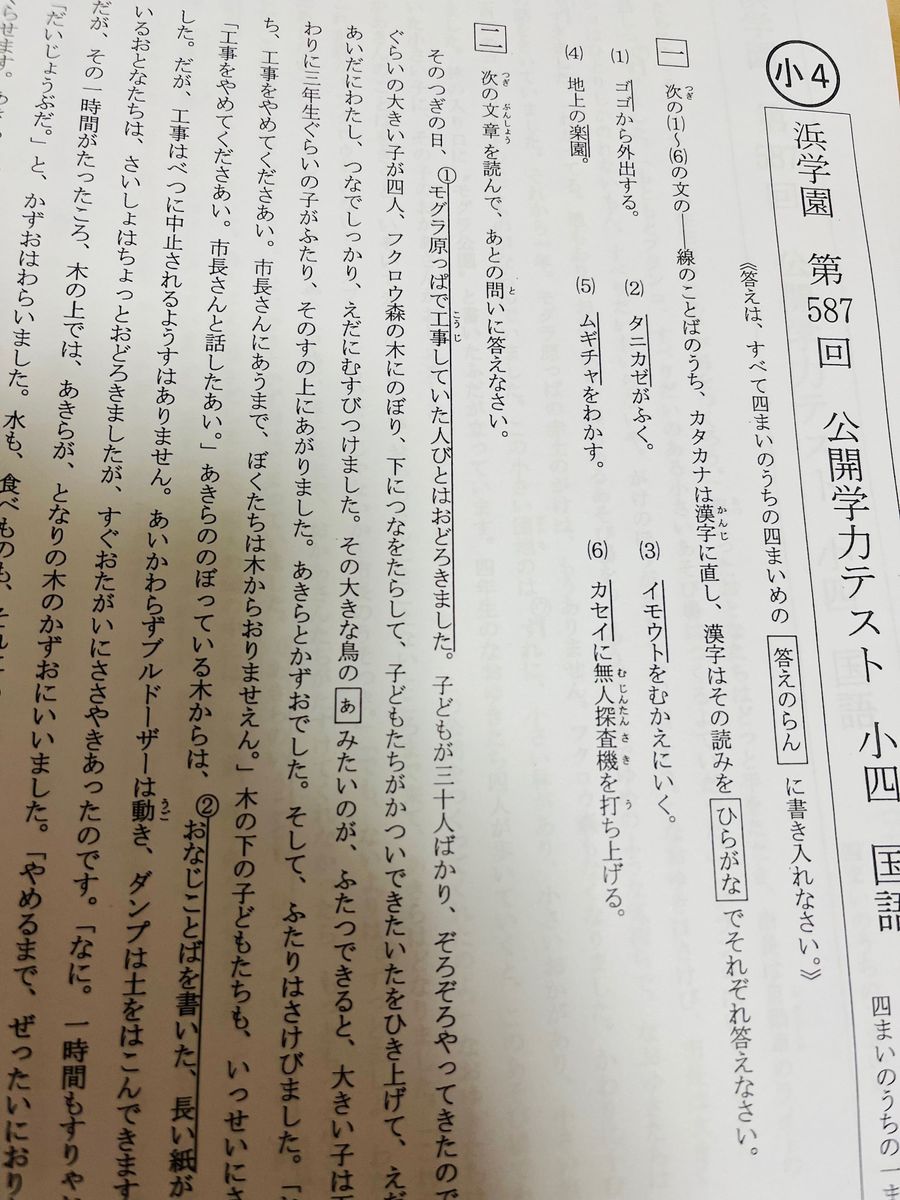 小4
浜学園　第587回　公開学力テスト　小四　国語　四まいのうちの一ま
《答えは、すべて四まいのうちの四まいめの 答えのらん に書き入れなさい。》
一　次の(1)～(6)の文の――線のことばのうち、カタカナは漢字に直し、漢字はその読みを ひらがな でそれぞれ答えなさい。
(1) ゴゴから外出する。　(2) タニカゼがふく。　(3) イモウトをむかえにいく。
(4) 地上の楽園。　(5) ムギチャをわかす。　(6) カセイに無人探査機を打ち上げる。
二　次の文章を読んで、あとの問いに答えなさい。
そのつぎの日、①モグラ原っぱで工事していた人びとはおどろきました。子どもが三十人ばかり、ぞろぞろやってきたので
ぐらいの大きい子が四人、フクロウ森の木にのぼり、下につなをたらして、子どもたちがかついできたいたをひき上げて、えだ
あいだにわたし、つなでしっかり、えだにむすびつけました。その大きな鳥の あ みたいのが、ふたつできると、大きい子は
わりに三年生ぐらいの子がふたり、そのすの上にあがりました。あきらとかずおでした。そして、ふたりはさけびました。「
ち、工事をやめてくださあい。市長さんにあうまで、ぼくたちは木からおりませえん。」木の下の子どもたちも、いっせいにさ
「工事をやめてくださあい。市長さんと話したあい。」あきらののぼっている木からは、②おなじことばを書いた、長い紙が
した。だが、工事はべつに中止されるようすはありません。あいかわらずブルドーザーは動き、ダンプは土をはこんできます
いるおとなたちは、さいしょはちょっとおどろきましたが、すぐおたがいにささやきあったのです。「なに。一時間もすりゃ
だが、その一時間がたったころ、木の上では、あきらが、となりの木のかずおにいいました。「やめるまで、ぜったいにおり
「だいじょうぶだ。」と、かずおはわらいました。水も、食べものも、それに
らせます。